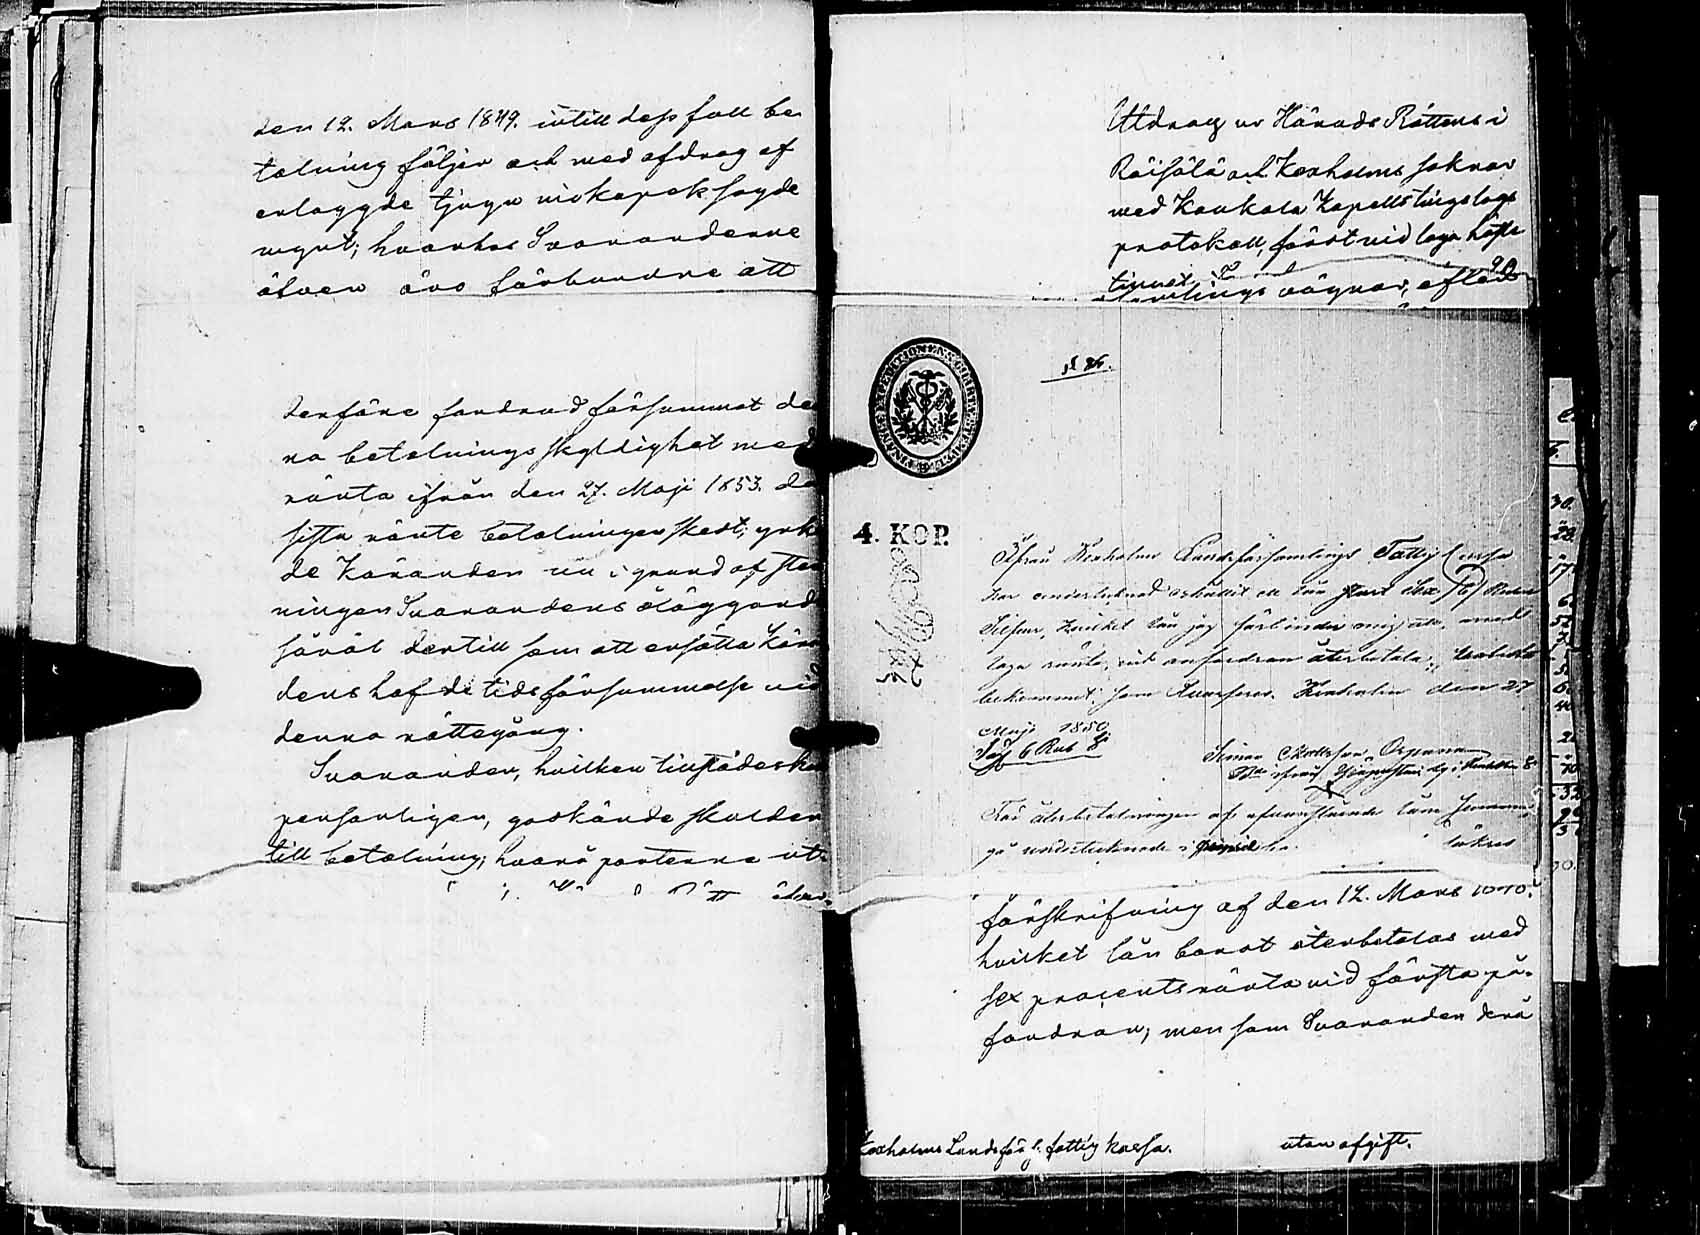 den 12. Mars 1849. intill dess full be
talning följer och med afdrag af
erlaggde tjugu nio kopek sagde
mynt; hvarhos Svaranderne
äfven äro förbundne att
derföre fordrad försummat den
na betalnings skyldighet med
ränta ifrån den 27. Maji 1853. då
sista ränte betalningen skedt; yrka
de Käranden nu i grund af stem
ningen Svarandens åläggand
såväl dertill som att ersätta Kären
dens hafde tidsförsummelse vid
denna rättegång.
Svaranden, hvilken tillstädeskom
personligen, godkände skulden
till betalning; hvarå parterne ut
Utdrag ur Härads Rättens i
Räisälä och Kexholms soknar
med Kaukola Kapells tingslags
protokoll, fördt vid laga höste
tinget i
vägnar, efter
4. KOP.
Ifrån Kexholms Landsförsamlings Fattig Cassa
har undertecknad erhållit ett lån stort Sex /6/ Rubel
Silfver, hvilket lån jag förbinder mig att med
laga ränta vid anfordran återbetala;
bekommit; som qvitteras. Kexholm den 27
Maji 1850.
6 Rub S
Simon
För återbetalningen af ofvanstående lån
gå undertecknade i
förskrifning af den 12. Mars
hvilket lån borat återbetalas med
sex procents ränta vid första på-
fordran; men som Svaranden derå
Kexholms Landsförs. fattig kassa.
utan afgift.